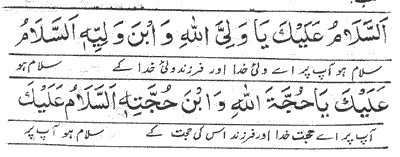 اَلسَّلَامُ عَلَيْكَ يَا وَلِيَّ اللّٰهِ وَ ابْنَ وَلِيِّهٖ اَلسَّلَامُ
سلام ہو آپ پر اے ولیٔ خدا اور فرزند ولیٔ خدا کے سلام ہو
عَلَيْكَ يَا حُجَّةَ اللّٰهِ وَ ابْنَ حُجَّتِهٖ اَلسَّلَامُ عَلَيْكَ
آپ پر اے حجت خدا اور فرزند اس کی حجت کے سلام ہو آپ پر